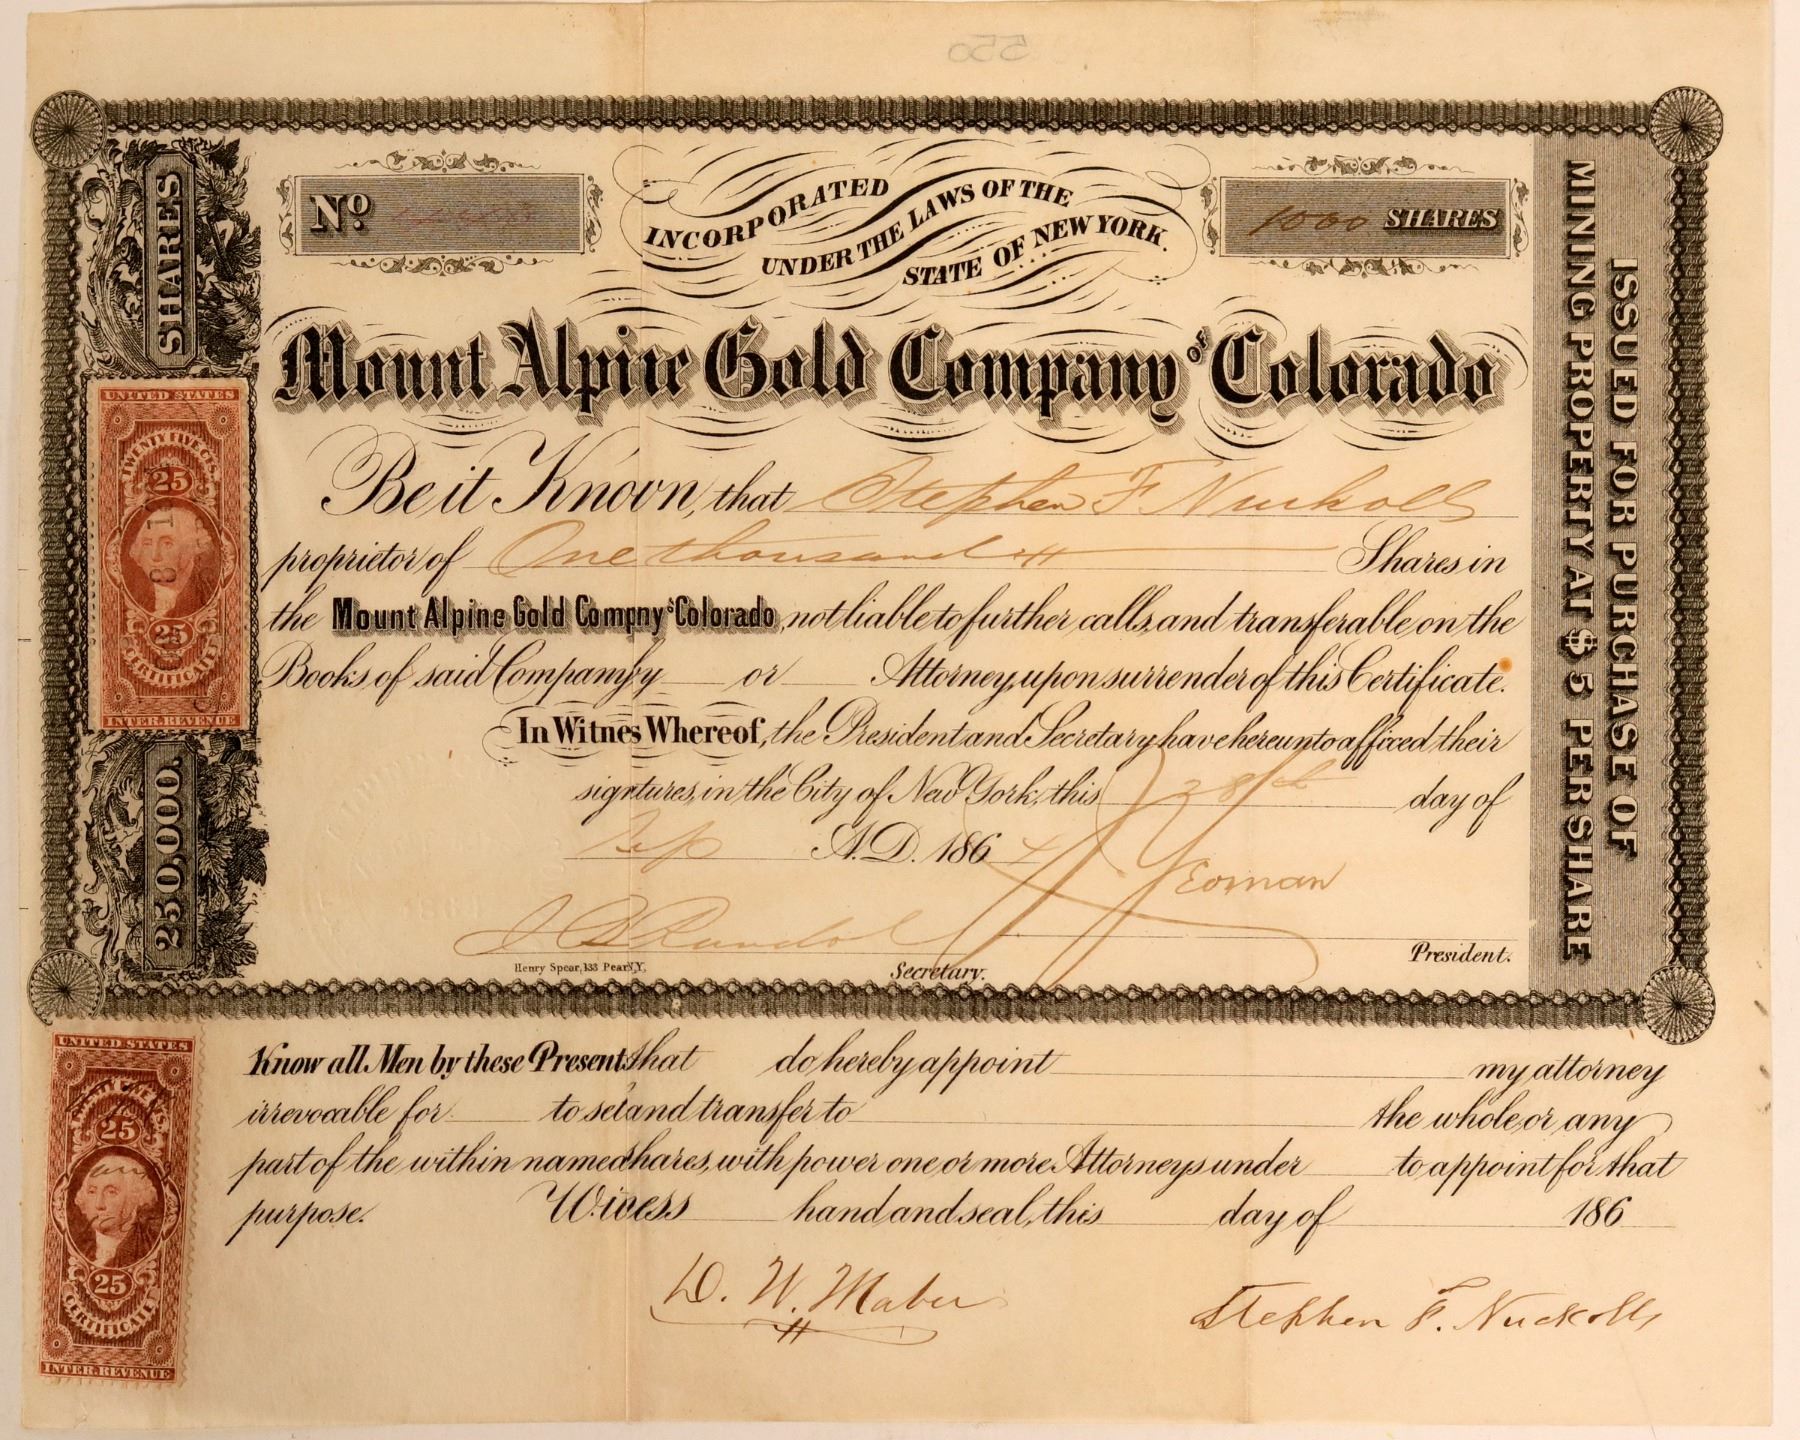 550
Nº
INCORPORATED
UNDER THE LAWS OF THE
STATE OF NEW YORK.
1000 SHARES
SHARES
250,000.
Mount Alpine Gold Company of Colorado
Be it Known, that Stephen F Nuckolls
proprietor of One thousand Shares in
the Mount Alpine Gold Compny of Colorado, not liable to further calls, and transferable on the
Books of said Company by or Attorney, upon surrender of this Certificate.
In Witnes Whereof, the President and Secretary have hereunto affixed their
signtures, in the City of New York, this 28th day of
Sep A.D. 1864
J Yeoman
President.
J B Randol
Secretary.
Henry Spear, 133 Pearl N.Y.
ISSUED FOR PURCHASE OF
MINING PROPERTY AT $5 PER SHARE
UNITED STATES
TWENTY FIVE CTS.
25
25
CERTIFICATE
INTER. REVENUE
Know all Men by these Presents that do hereby appoint my attorney
irrevocable for to sel and transfer to the whole, or any
part of the within named shares, with power one or more Attorneys under to appoint for that
purpose. Winess hand and seal, this day of 186
UNITED STATES
TWENTY FIVE CTS.
25
25
CERTIFICATE
INTER. REVENUE
D. W. Maber
Stephen F. Nuckolls